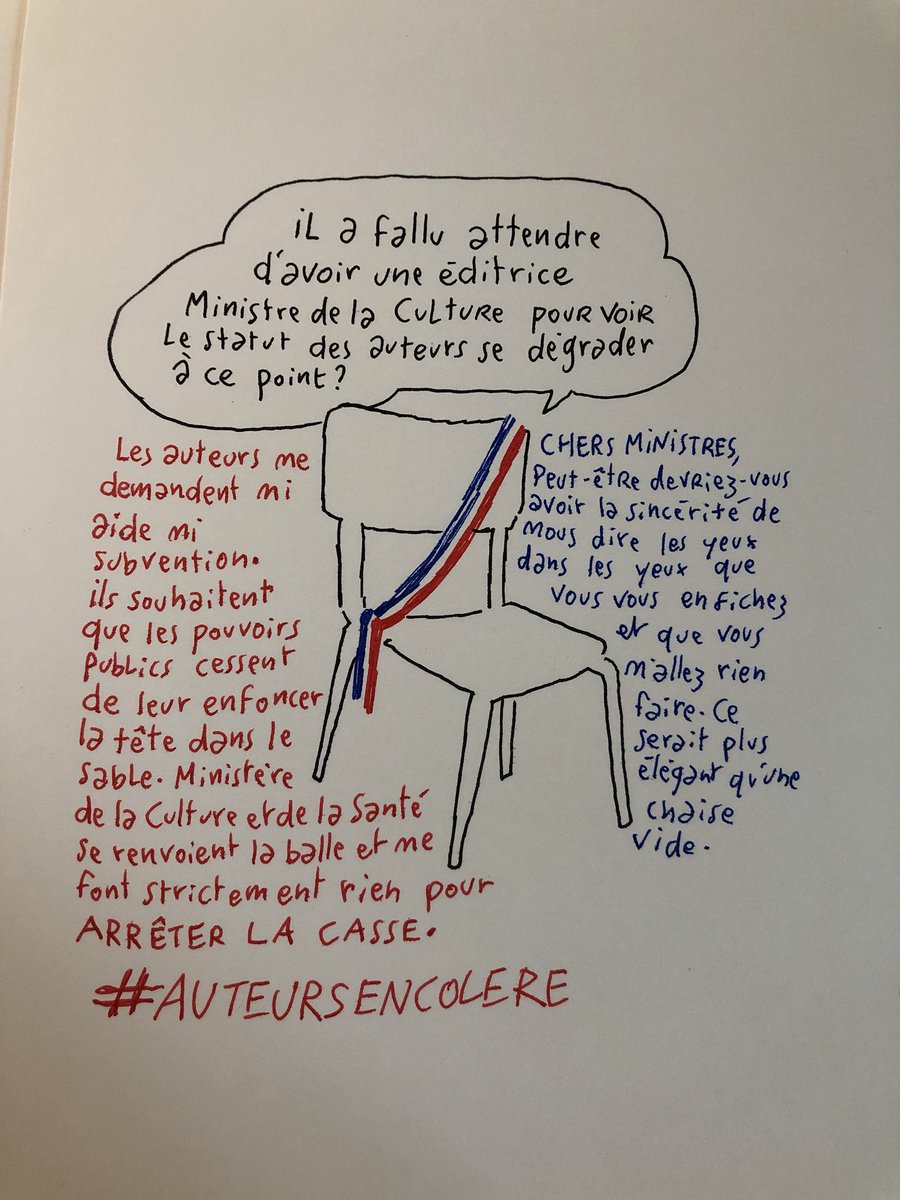 iL a fallu attendre
d'avoir une éditrice
Ministre de la CuLtuRe pouR voiR
Le statut des auteurs se dégrader
à ce point?
Les auteurs me
demandent ni
aide ni
subvention.
ils souhaitent
que les pouvoirs
publics cessent
de leur enfoncer
la tête dans le
sable. Ministère
de la Culture et de la Santé
se renvoient la balle et ne
font strictement rien pour
ARRÊTER LA CASSE.
#AUTEURSENCOLERE
CHERS MINISTRES,
Peut-être devriez-vous
avoir la sincérité de
nous dire les yeux
dans les yeux que
vous vous en fichez
et que vous
n'allez rien
faire. Ce
serait plus
élégant qu'une
chaise
vide.